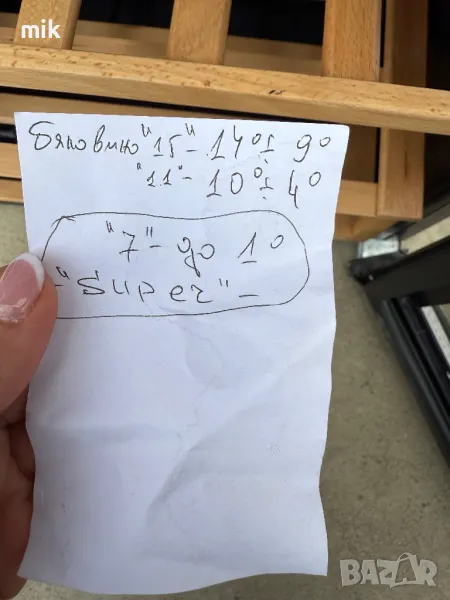 mik
бяло вино "15" - 14° i 9°
"11" - 10° i 4°
"7" - до 1°
- "Super" -
BAZAR